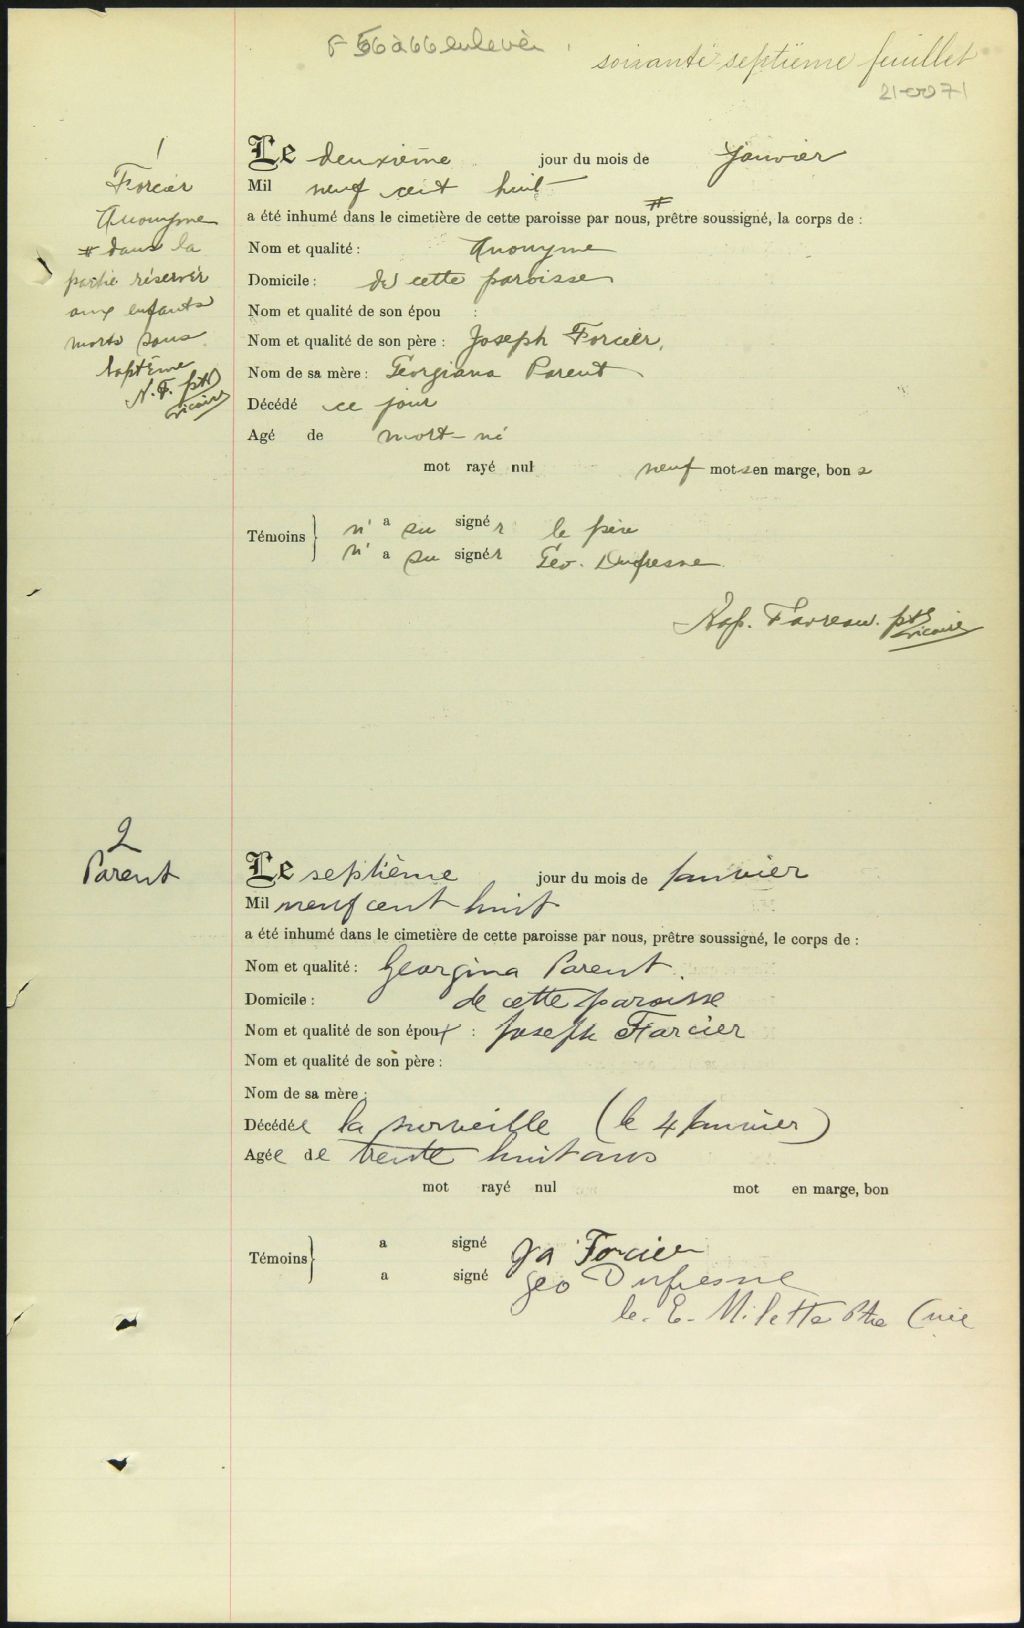 F 56 à 66 enlevés
soixante septième feuillet
21-0071
1
Forcier
Anonyme
# dans la
partie réservée
aux enfants
morts sans
baptême
N. F. ptre
vicaire
Le deuxième jour du mois de Janvier
Mil neuf cent huit
a été inhumé dans le cimetière de cette paroisse par nous, # prêtre soussigné, la corps de :
Nom et qualité : Anonyme
Domicile : de cette paroisse
Nom et qualité de son épou :
Nom et qualité de son père : Joseph Forcier,
Nom de sa mère : Georgiana Parent
Décédé ce jour
Agé de mort-né
mot rayé nul neuf mots en marge, bons
Témoins n'a su signer le père
n'a su signer Geo. Dufresne
Nap. Favreau. ptre
vicaire
2
Parent
Le septième jour du mois de Janvier
Mil neuf cent huit
a été inhumé dans le cimetière de cette paroisse par nous, prêtre soussigné, le corps de :
Nom et qualité : Georgina Parent.
Domicile : de cette paroisse
Nom et qualité de son époux : Joseph Farcier
Nom et qualité de son père :
Nom de sa mère :
Décédée la surveille (le 4 Janvier)
Agée de trente huit ans
mot rayé nul mot en marge, bon
Témoins a signé Forcier
a signé Geo Dufresne
E. Milette Ptre Curé